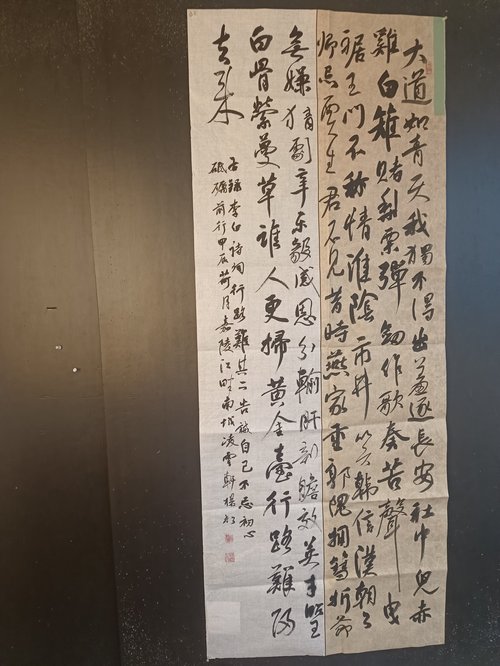 大道如青天我獨不得出羞逐長安社中兒赤
雞白雉賭梨栗彈劍作歌奏苦聲曳
裾王門不称情淮陰市井笑韓信漢朝公
卿忌賈生君不見昔時燕家重郭隗擁篲折節
無嫌猜劇辛樂毅感恩分輸肝剖膽效英才昭王
白骨縈蔓草誰人更掃黃金臺行路難歸
去來
右錄李白詩詞行路難其二告誡自己不忘初心
砥礪前行甲辰荷月嘉陵江畔南城凌雲軒楊